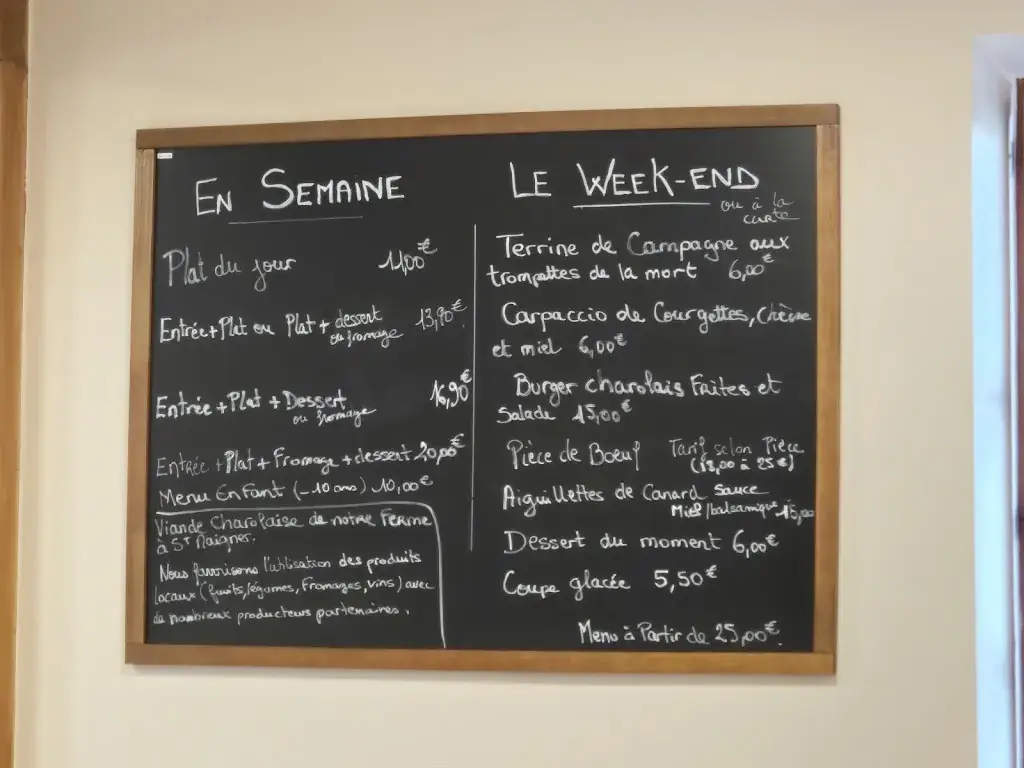 En Semaine
Plat du jour 11,00€
Entrée+Plat ou Plat + dessert 13,90€
ou fromage
Entrée+Plat + Dessert 16,90€
ou fromage
Entrée +Plat + Fromage + dessert 20,00€
Menu Enfant (-10 ans) 10,00€
Viande Charolaise de notre Ferme
à St
Nous favorisons l'utilisation des produits
locaux (fruits, légumes, Fromages, vins) avec
de nombreux producteurs partenaires.
Le Week-end
ou à la
carte
Terrine de Campagne aux
trompettes de la mort 6,00€
Carpaccio de Courgettes, Chèvre
et miel 6,00€
Burger charolais Frites et
Salade 15,00€
Pièce de Boeuf Tarif selon Pièce
(18,00 à 25€)
Aiguillettes de Canard Sauce
Miel/balsamique 15,00
Dessert du moment 6,00€
Coupe glacée 5,50€
Menu à Partir de 25,00€